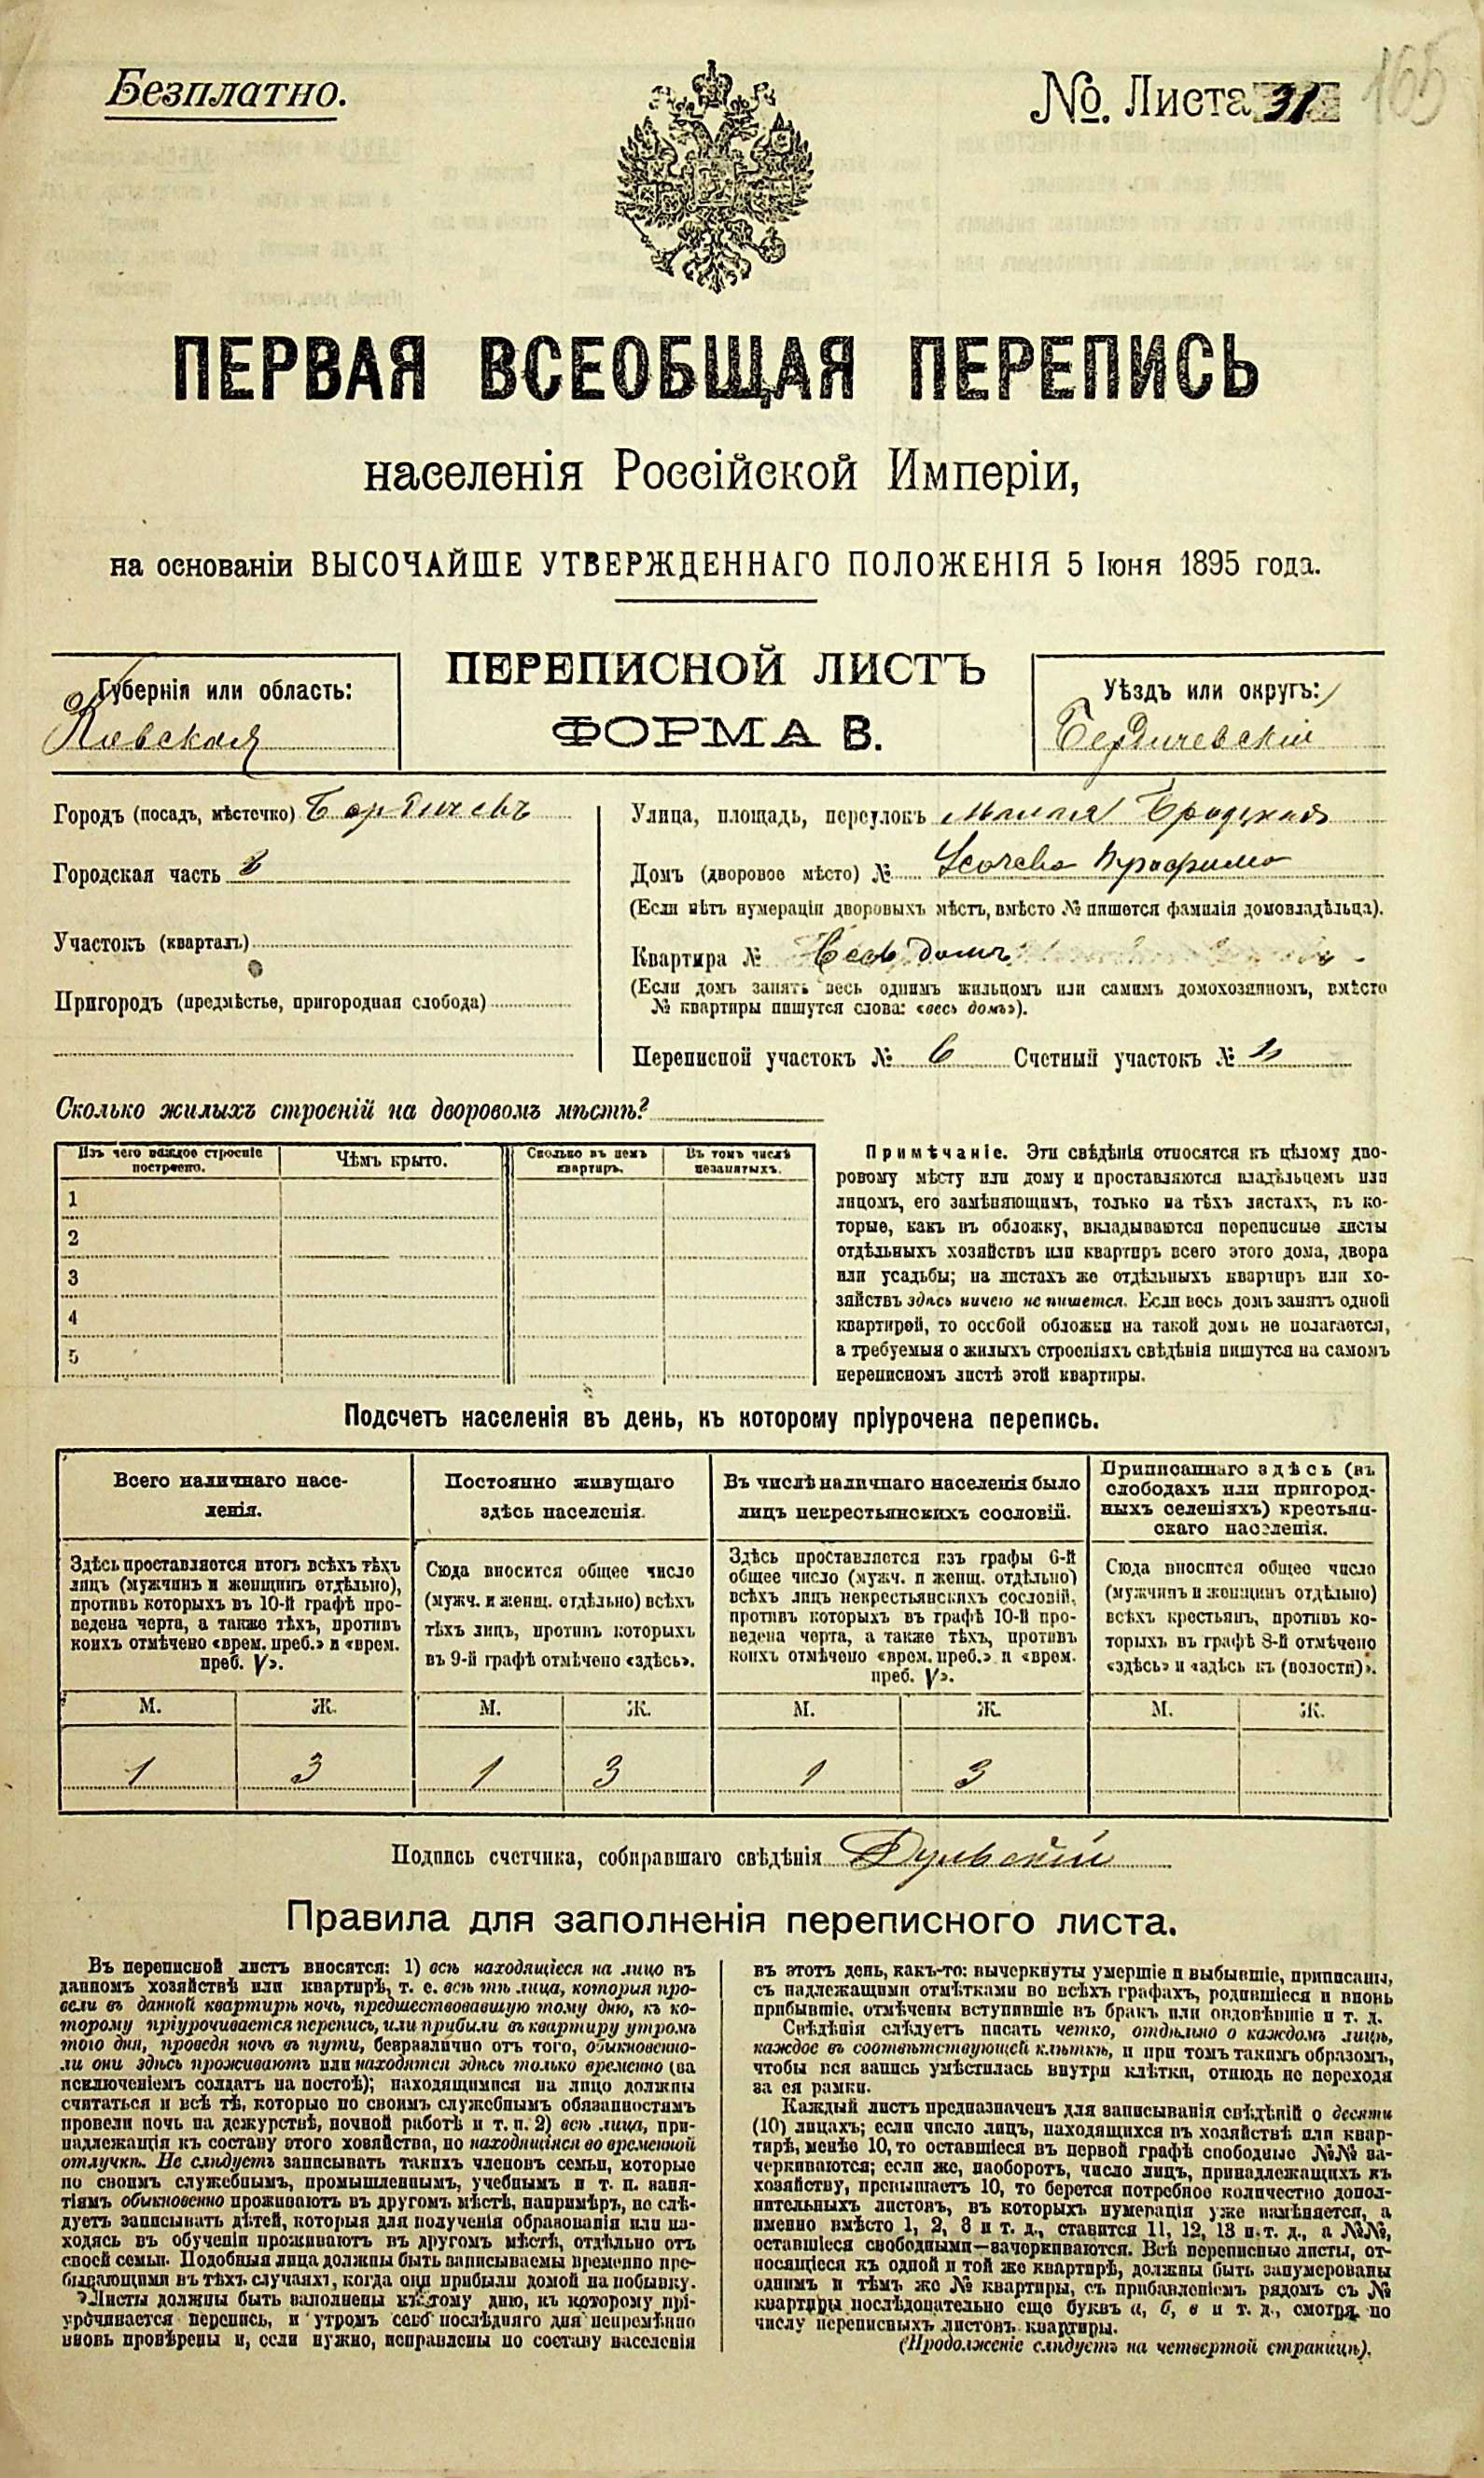 Безплатно.
№. Листа 31
165
ПЕРВАЯ ВСЕОБЩАЯ ПЕРЕПИСЬ
населенія Россійской Имперіи,
на основаніи ВЫСОЧАЙШЕ УТВЕРЖДЕННАГО ПОЛОЖЕНІЯ 5 Іюня 1895 года.
ПЕРЕПИСНОЙ ЛИСТЪ
ФОРМА В.
Губернія или область:
Кіевская
Уѣздъ или округъ:
Бердичевскій
Городъ (посадъ, мѣстечко) Бердичевъ
Городская часть
Участокъ (кварталъ)
Пригородъ (предмѣстье, пригородная слобода)
Улица, площадь, переулокъ Малая Бродская
Домъ (дворовое мѣсто) №
(Если нѣтъ нумераціи дворовыхъ мѣстъ, вмѣсто № пишется фамилія домовладѣльца).
Квартира № Весь домъ
(Если домъ занятъ весь однимъ жильцомъ или самимъ домохозяиномъ, вмѣсто
№ квартиры пишутся слова: «весь домъ»).
Переписной участокъ № 6 Счетный участокъ №
Сколько жилыхъ строеній на дворовомъ мѣстѣ?
Изъ чего каждое строеніе построено.
Чѣмъ крыто.
Сколько въ немъ квартиръ.
Въ томъ числѣ незанятыхъ.
1
2
3
4
5
Примѣчаніе. Эти свѣдѣнія относятся къ цѣлому дво-
ровому мѣсту или дому и проставляются владѣльцемъ или
лицомъ, его замѣняющимъ, только на тѣхъ листахъ, въ ко-
торые, какъ въ обложку, вкладываются переписные листы
отдѣльныхъ хозяйствъ или квартиръ всего этого дома, двора
или усадьбы; на листахъ же отдѣльныхъ квартиръ или хо-
зяйствъ здѣсь ничего не пишется. Если весь домъ занятъ одной
квартирой, то особой обложки на такой домъ не полагается,
а требуемыя о жилыхъ строеніяхъ свѣдѣнія пишутся на самомъ
переписномъ листѣ этой квартиры.
Подсчетъ населенія въ день, къ которому пріурочена перепись.
Всего наличнаго насе-
ленія.
Здѣсь проставляется итогъ всѣхъ тѣхъ
лицъ (мужчинъ и женщинъ отдѣльно),
противъ которыхъ въ 10-й графѣ про-
ведена черта, а также тѣхъ, противъ
коихъ отмѣчено «врем. преб.» и «врем.
преб. V».
Постоянно живущаго
здѣсь населенія.
Сюда вносится общее число
(мужч. и женщ. отдѣльно) всѣхъ
тѣхъ лицъ, противъ которыхъ
въ 9-й графѣ отмѣчено «здѣсь».
Въ числѣ наличнаго населенія было
лицъ некрестьянскихъ сословій.
Здѣсь проставляется изъ графы 6-й
общее число (мужч. и женщ. отдѣльно)
всѣхъ лицъ некрестьянскихъ сословій,
противъ которыхъ въ графѣ 10-й про-
ведена черта, а также тѣхъ, противъ
коихъ отмѣчено «врем. преб.» и «врем.
преб. V».
Приписаннаго здѣсь (въ
слободахъ или пригород-
ныхъ селеніяхъ) крестьян-
скаго населенія.
Сюда вносится общее число
(мужчинъ и женщинъ отдѣльно)
всѣхъ крестьянъ, противъ ко-
торыхъ въ графѣ 8-й отмѣчено
«здѣсь» и «здѣсь къ (волости)».
М. Ж. М. Ж. М. Ж. М. Ж.
1 3 1 3 1 3
Подпись счетчика, собиравшаго свѣдѣнія
Правила для заполненія переписного листа.
Въ переписной листъ вносятся: 1) всѣ находящіеся на лицо въ
данномъ хозяйствѣ или квартирѣ, т. е. всѣ тѣ лица, которыя про-
вели въ данной квартирѣ ночь, предшествовавшую тому дню, къ ко-
торому пріурочивается перепись, или прибыли въ квартиру утромъ
того дня, проведя ночь въ пути, безразлично отъ того, обыкновенно-
ли они здѣсь проживаютъ или находятся здѣсь только временно (за
исключеніемъ солдатъ на постоѣ); находящимися на лицо должны
считаться и всѣ тѣ, которые по своимъ служебнымъ обязанностямъ
провели ночь на дежурствѣ, ночной работѣ и т. п. 2) всѣ лица, при-
надлежащія къ составу этого хозяйства, но находящіяся во временной
отлучкѣ. Не слѣдуетъ записывать такихъ членовъ семьи, которые
по своимъ служебнымъ, промышленнымъ, учебнымъ и т. п. заня-
тіямъ обыкновенно проживаютъ въ другомъ мѣстѣ, напримѣръ, не слѣ-
дуетъ записывать дѣтей, которыя для полученія образованія или на-
ходясь въ обученіи проживаютъ въ другомъ мѣстѣ, отдѣльно отъ
своей семьи. Подобныя лица должны быть записываемы временно пре-
бывающими въ тѣхъ случаяхъ, когда они прибыли домой на побывку.
Листы должны быть заполнены къ тому дню, къ которому прі-
урочивается перепись, и утромъ сего послѣдняго дня непремѣнно
вновь провѣрены и, если нужно, исправлены по составу населенія
въ этотъ день, какъ-то: вычеркнуты умершіе и выбывшіе, приписаны,
съ надлежащими отмѣтками во всѣхъ графахъ, родившіеся и вновь
прибывшіе, отмѣчены вступившіе въ бракъ или овдовѣвшіе и т. д.
Свѣдѣнія слѣдуетъ писать четко, отдѣльно о каждомъ лицѣ,
каждое въ соотвѣтствующей клѣткѣ, и при томъ такимъ образомъ,
чтобы вся запись умѣстилась внутри клѣтки, отнюдь не переходя
за ея рамки.
Каждый листъ предназначенъ для записыванія свѣдѣній о десяти
(10) лицахъ; если число лицъ, находящихся въ хозяйствѣ или квар-
тирѣ, менѣе 10, то оставшіеся въ первой графѣ свободные №№ за-
черкиваются; если же, наоборотъ, число лицъ, принадлежащихъ къ
хозяйству, превышаетъ 10, то берется потребное количество допол-
нительныхъ листовъ, въ которыхъ нумерація уже измѣняется, а
именно вмѣсто 1, 2, 3 и т. д., ставится 11, 12, 13 и т. д., а №№,
оставшіеся свободными—зачеркиваются. Всѣ переписные листы, от-
носящіеся къ одной и той же квартирѣ, должны быть занумерованы
однимъ и тѣмъ же № квартиры, съ прибавленіемъ рядомъ съ №
квартиры послѣдовательно еще буквъ а, б, в и т. д., смотря по
числу переписныхъ листовъ квартиры.
(Продолженіе слѣдуетъ на четвертой страницѣ).